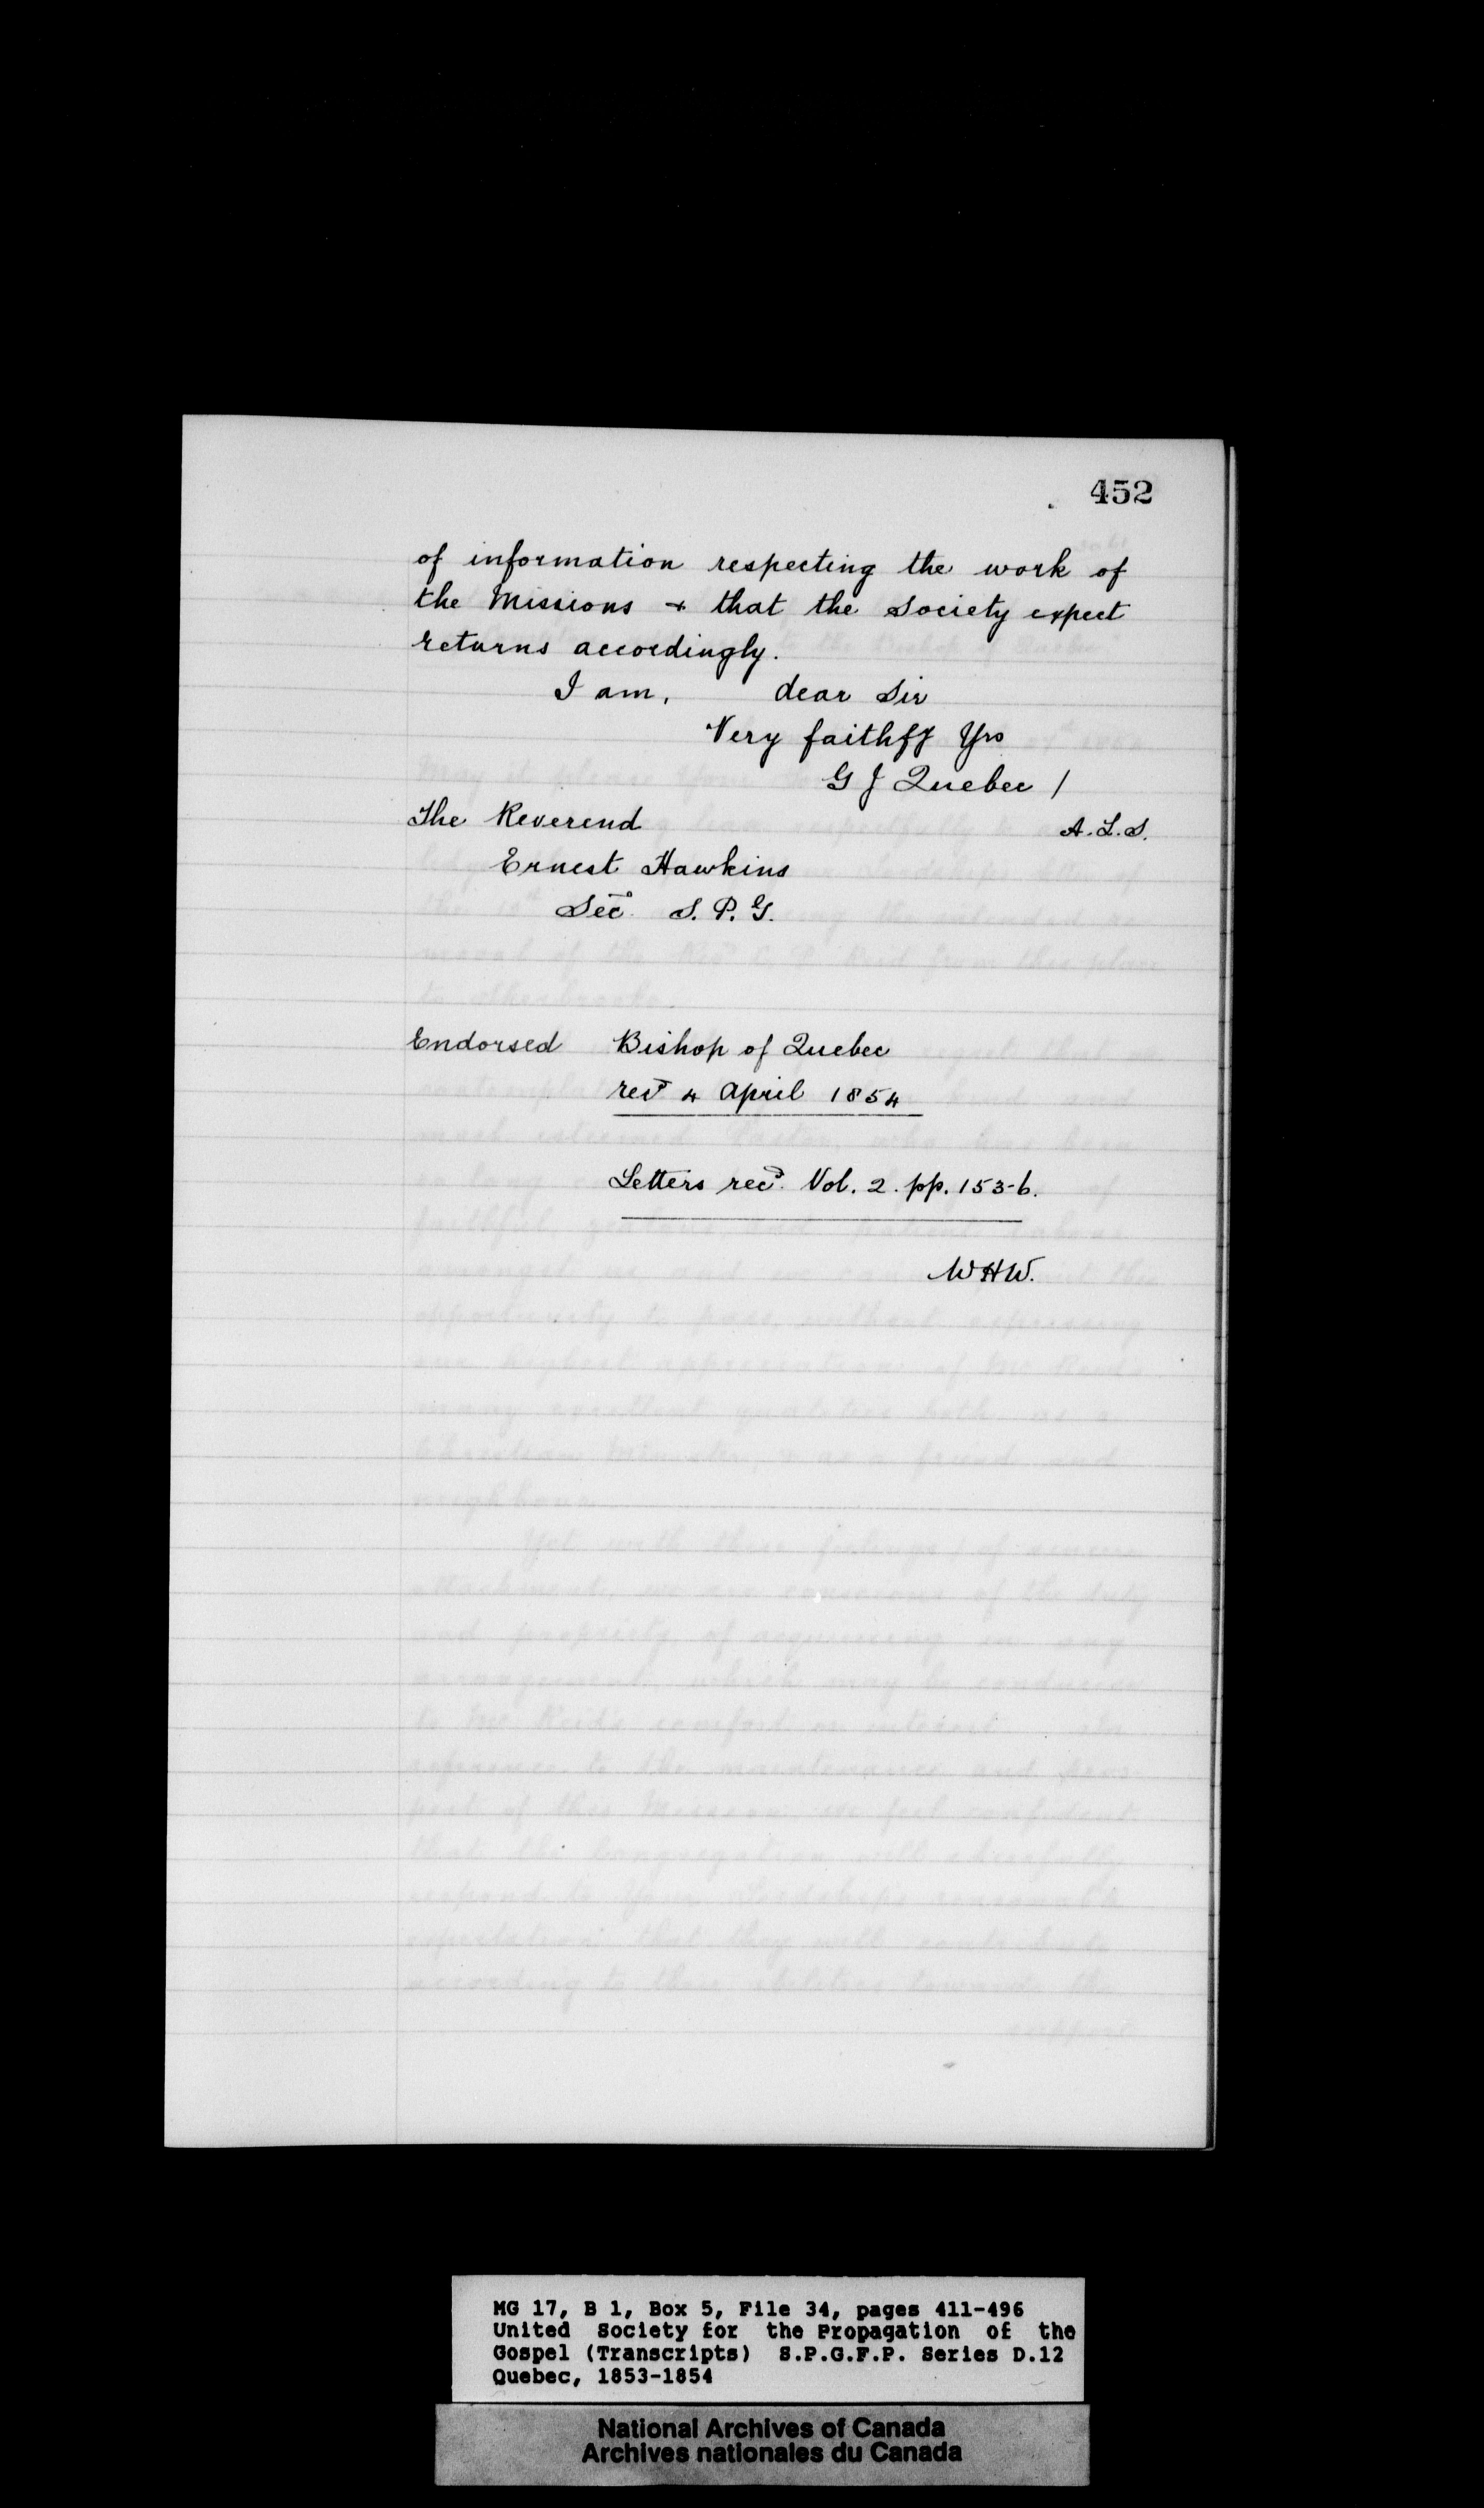 452
of information respecting the work of
the Missions & that the Society expect
returns accordingly.
I am, dear Sir
Very faithfy Yrs
G J Quebec /
The Reverend A.L.S.
Ernest Hawkins
Secy S. P. G.
Endorsed Bishop of Quebec
recd 4 April 1854
Letters recd. Vol. 2. pp. 153-6.
WHW.
MG 17, B 1, Box 5, File 34, pages 411-496
United Society for the Propagation of the
Gospel (Transcripts) S.P.G.F.P. Series D.12
Quebec, 1853-1854
National Archives of Canada
Archives nationales du Canada